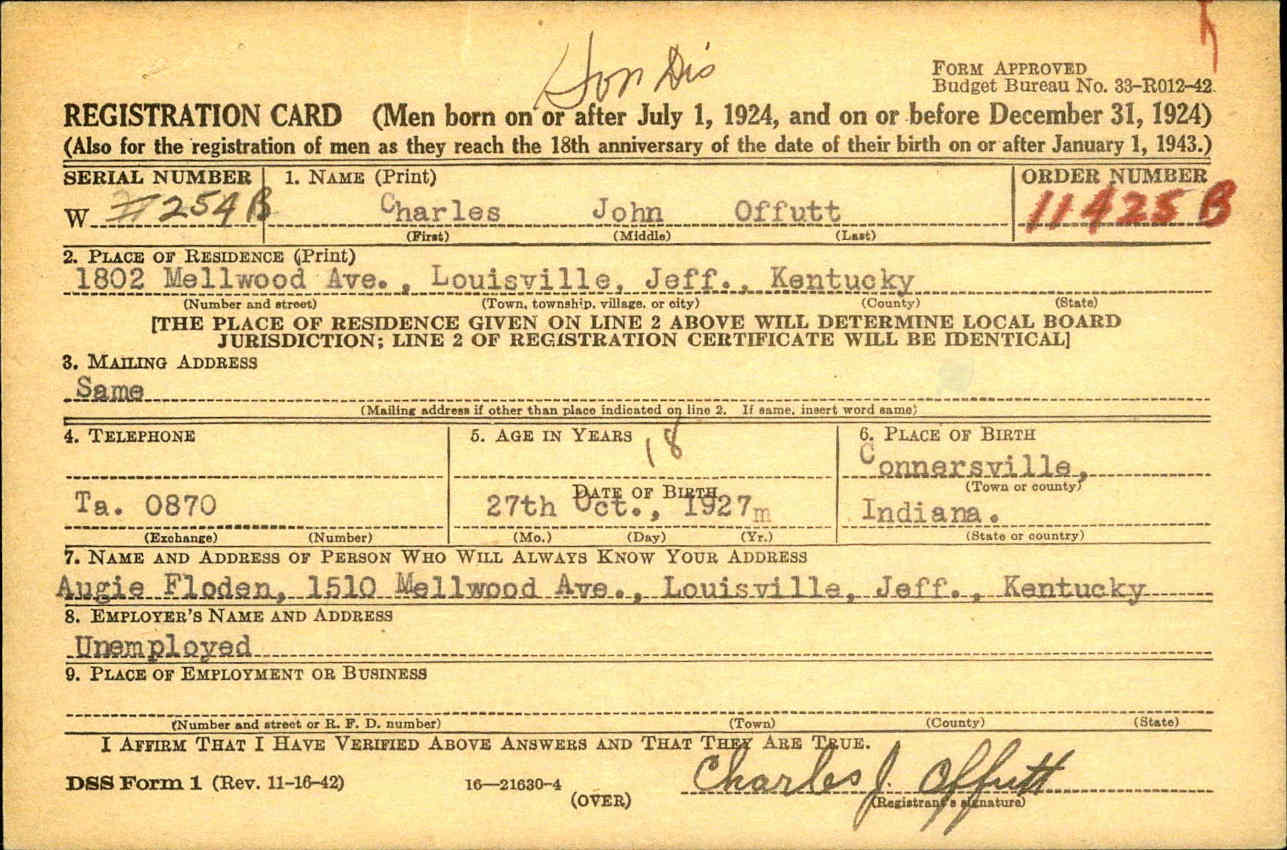 Hon Dis
FORM APPROVED
Budget Bureau No. 33-R012-42
REGISTRATION CARD (Men born on or after July 1, 1924, and on or before December 31, 1924)
(Also for the registration of men as they reach the 18th anniversary of the date of their birth on or after January 1, 1943.)
SERIAL NUMBER 1. NAME (Print) ORDER NUMBER
W 254B Charles John Offutt 11425 B
(First) (Middle) (Last)
2. PLACE OF RESIDENCE (Print)
1802 Mellwood Ave., Louisville, Jeff., Kentucky
(Number and street) (Town, township, village, or city) (County) (State)
[THE PLACE OF RESIDENCE GIVEN ON LINE 2 ABOVE WILL DETERMINE LOCAL BOARD
JURISDICTION; LINE 2 OF REGISTRATION CERTIFICATE WILL BE IDENTICAL]
3. MAILING ADDRESS
Same
(Mailing address if other than place indicated on line 2. If same, insert word same)
4. TELEPHONE 5. AGE IN YEARS 18 6. PLACE OF BIRTH
Connersville,
(Town or county)
DATE OF BIRTH
Ta. 0870 27th Oct., 1927 m Indiana.
(Exchange) (Number) (Mo.) (Day) (Yr.) (State or country)
7. NAME AND ADDRESS OF PERSON WHO WILL ALWAYS KNOW YOUR ADDRESS
Augie Floden, 1510 Mellwood Ave., Louisville, Jeff., Kentucky
8. EMPLOYER'S NAME AND ADDRESS
Unemployed
9. PLACE OF EMPLOYMENT OR BUSINESS
(Number and street or R. F. D. number) (Town) (County) (State)
I AFFIRM THAT I HAVE VERIFIED ABOVE ANSWERS AND THAT THEY ARE TRUE.
DSS Form 1 (Rev. 11-16-42) 16—21630-4 Charles J. Offutt
(OVER) (Registrant's signature)